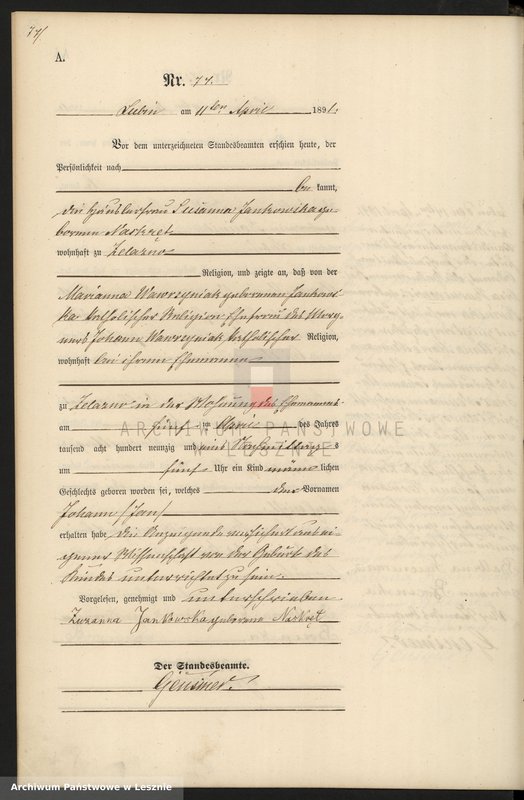 77/
A.
Nr. 77.
Lubin am 11ten April 1891.
Vor dem unterzeichneten Standesbeamten erschien heute, der
Persönlichkeit nach
be kannt,
die Häuslerfrau Susanna Jankowska ge-
borene Naskret
wohnhaft zu Zelazno
Religion, und zeigte an, daß von der
Marianna Wawrzyniak geborenen Jankows-
ka katholischer Religion Ehefrau des
Johann Wawrzyniak katholischer Religion,
wohnhaft bei ihrem Ehemanne
zu Zelazno in der Wohnung des Ehemannes
am fünf ten April des Jahres
tausend acht hundert neunzig und eins Nachmittags
um fünf Uhr ein Kind männ lichen
Geschlechts geboren worden sei, welches den Vornamen
Johann /Jan/
erhalten habe, die Anzeigende versichert aus ei-
gener Wissenschaft von der Geburt des
Kindes unterrichtet zu sein.
Vorgelesen, genehmigt und unterschrieben
Zuzanna Jankowska geborene Naskręt
Der Standesbeamte.
ARCHIWUM PAŃSTWOWE
W LESZNIE
Archiwum Państwowe w Lesznie